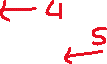 ← 4
← 5